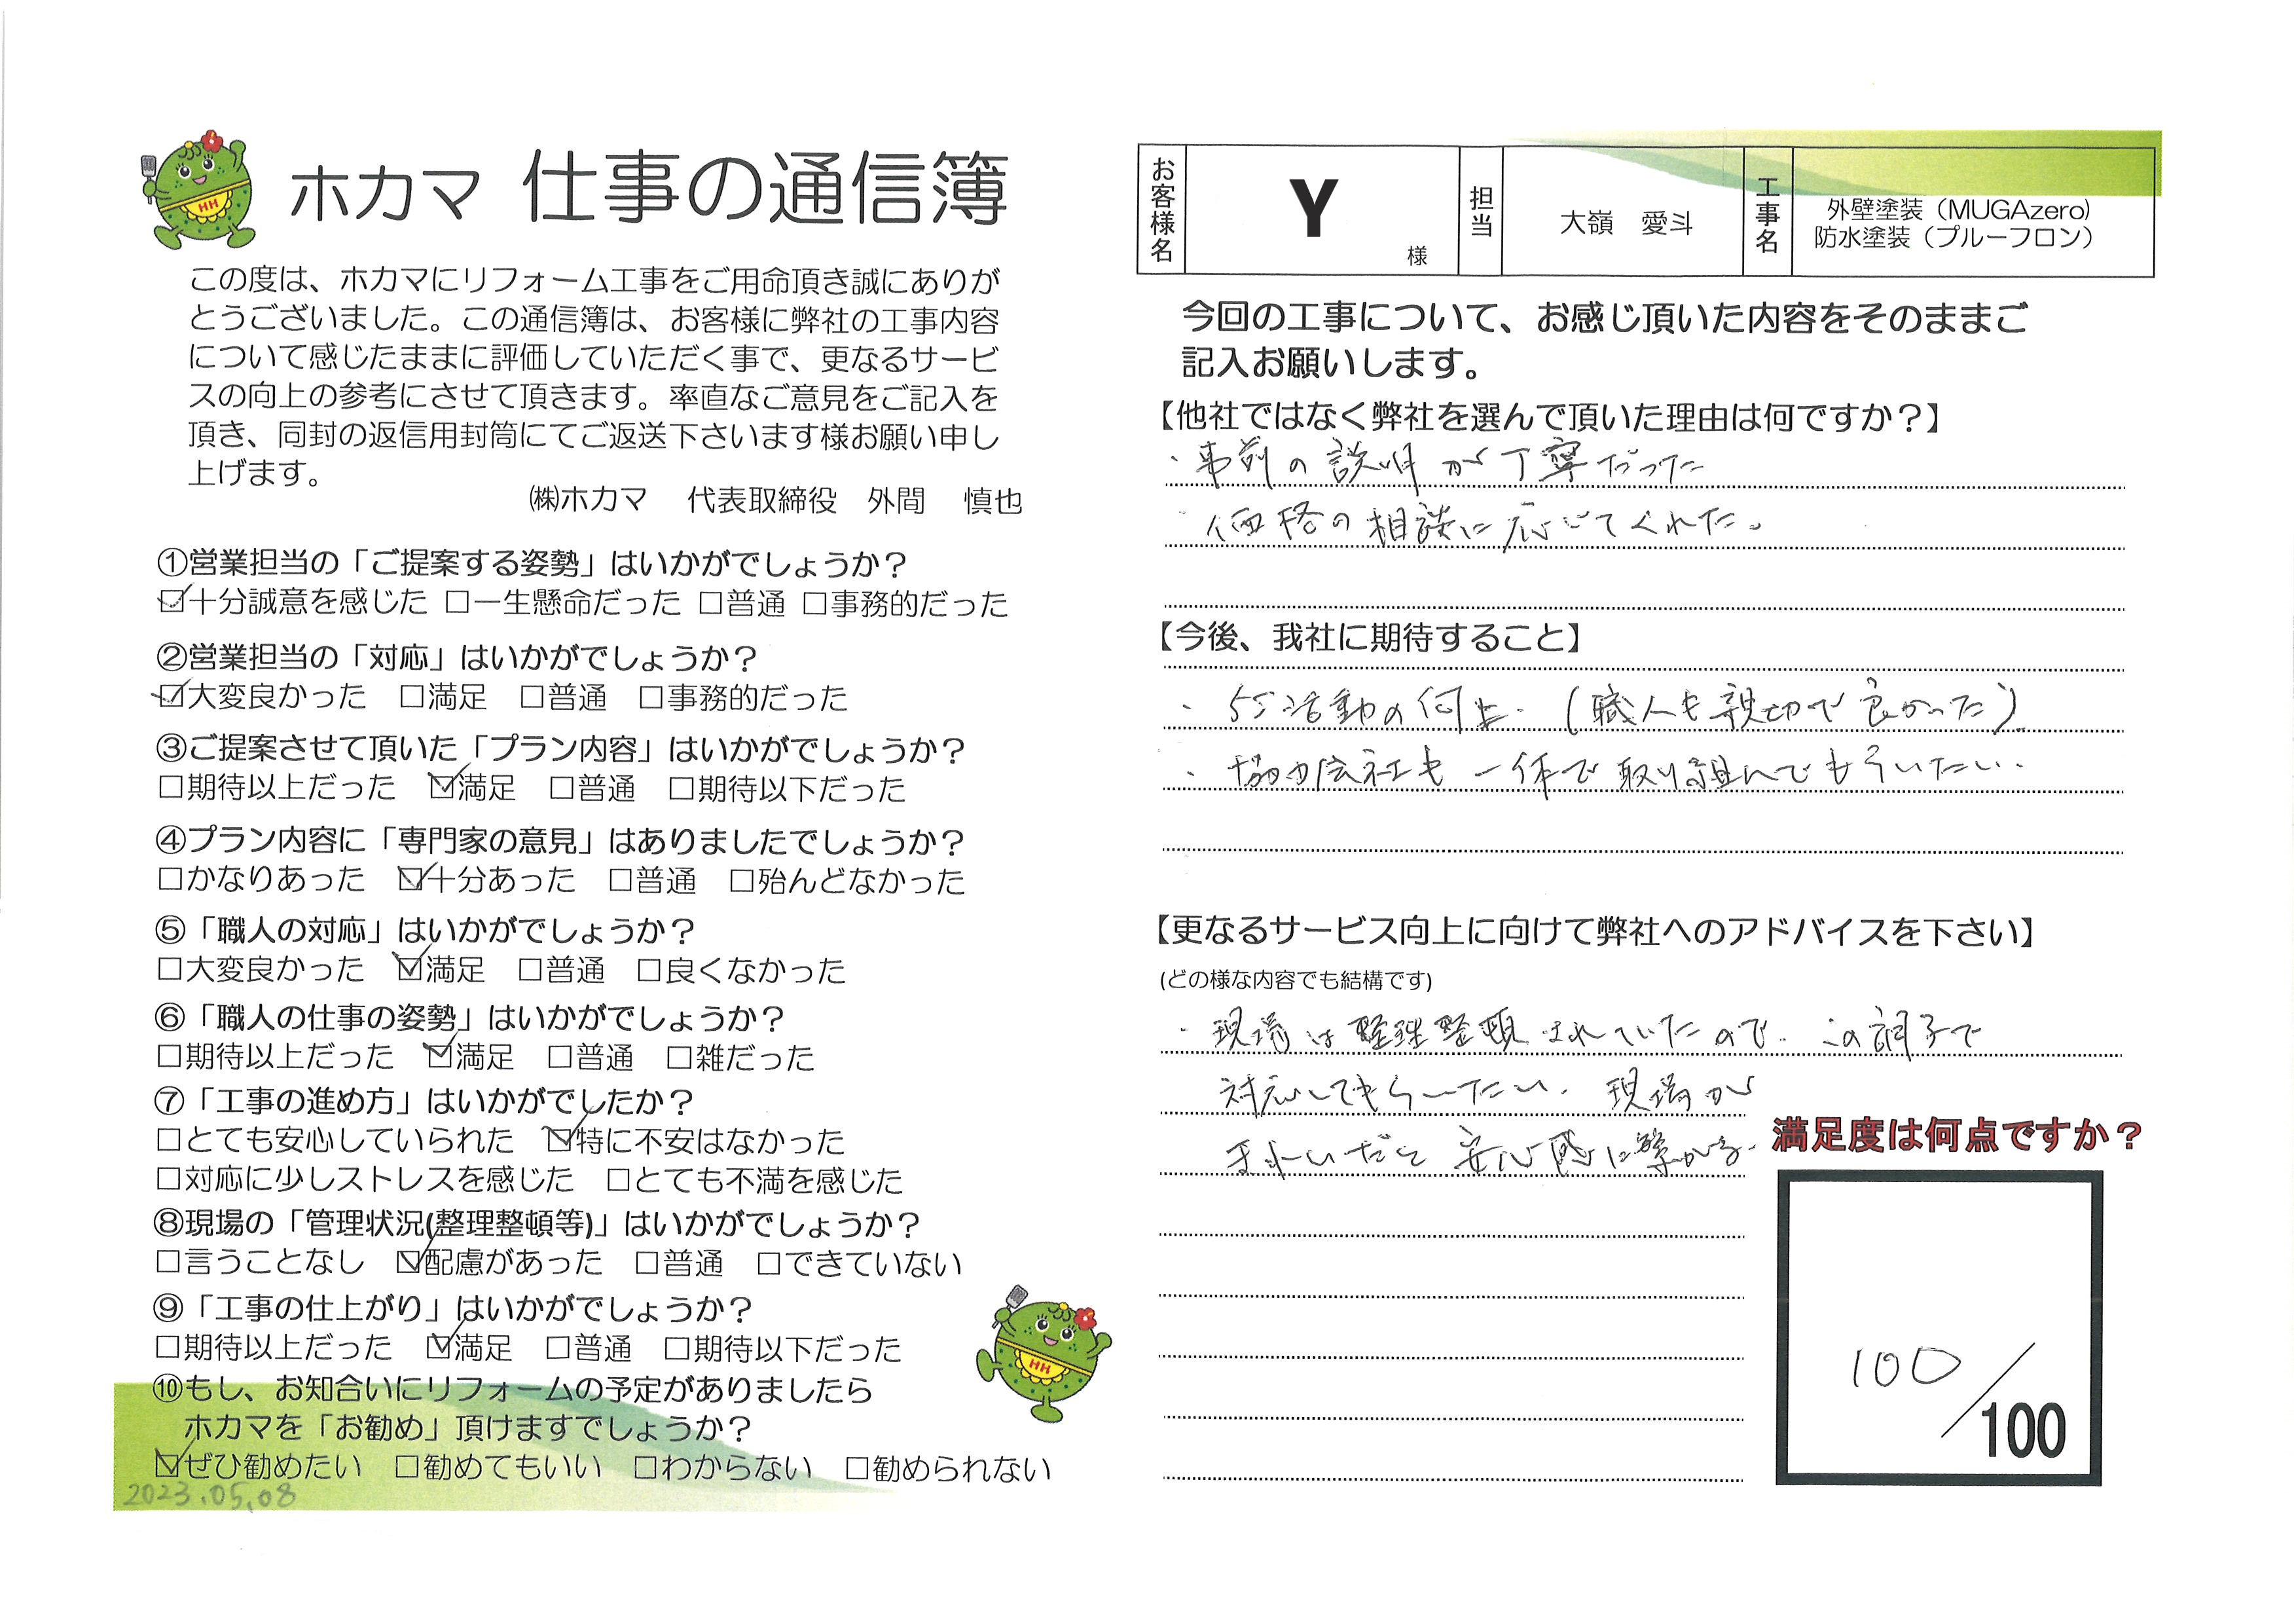 ホカマ 仕事の通信簿
この度は、ホカマにリフォーム工事をご用命頂き誠にありが
とうございました。この通信簿は、お客様に弊社の工事内容
について感じたままに評価していただく事で、更なるサービ
スの向上の参考にさせて頂きます。率直なご意見をご記入を
頂き、同封の返信用封筒にてご返送下さいます様お願い申し
上げます。
㈱ホカマ 代表取締役 外間 慎也
①営業担当の「ご提案する姿勢」はいかがでしょうか？
☑十分誠意を感じた □一生懸命だった □普通 □事務的だった
②営業担当の「対応」はいかがでしょうか？
☑大変良かった □満足 □普通 □事務的だった
③ご提案させて頂いた「プラン内容」はいかがでしょうか？
□期待以上だった ☑満足 □普通 □期待以下だった
④プラン内容に「専門家の意見」はありましたでしょうか？
□かなりあった ☑十分あった □普通 □殆んどなかった
⑤「職人の対応」はいかがでしょうか？
□大変良かった ☑満足 □普通 □良くなかった
⑥「職人の仕事の姿勢」はいかがでしょうか？
□期待以上だった ☑満足 □普通 □雑だった
⑦「工事の進め方」はいかがでしたか？
□とても安心していられた ☑特に不安はなかった
□対応に少しストレスを感じた □とても不満を感じた
⑧現場の「管理状況(整理整頓等)」はいかがでしょうか？
□言うことなし ☑配慮があった □普通 □できていない
⑨「工事の仕上がり」はいかがでしょうか？
□期待以上だった ☑満足 □普通 □期待以下だった
⑩もし、お知合いにリフォームの予定がありましたら
ホカマを「お勧め」頂けますでしょうか？
☑ぜひ勧めたい □勧めてもいい □わからない □勧められない
2023.05.08
お客様名 Y 様 担当 大嶺 愛斗 工事名 外壁塗装（MUGAzero）
防水塗装（プルーフロン）
今回の工事について、お感じ頂いた内容をそのままご
記入お願いします。
【他社ではなく弊社を選んで頂いた理由は何ですか？】
・事前の説明が丁寧だった
・価格の相談に応じてくれた。
【今後、我社に期待すること】
・5S活動の向上．（職人も親切で良かった）
・協力会社も一体で取り組んでもらいたい．
【更なるサービス向上に向けて弊社へのアドバイスを下さい】
(どの様な内容でも結構です)
・現場は整理整頓されていたので．この調子で
対応してもらいたい．現場が
きれいだと安心感に繋がる．
満足度は何点ですか？
100／100
HH
HH